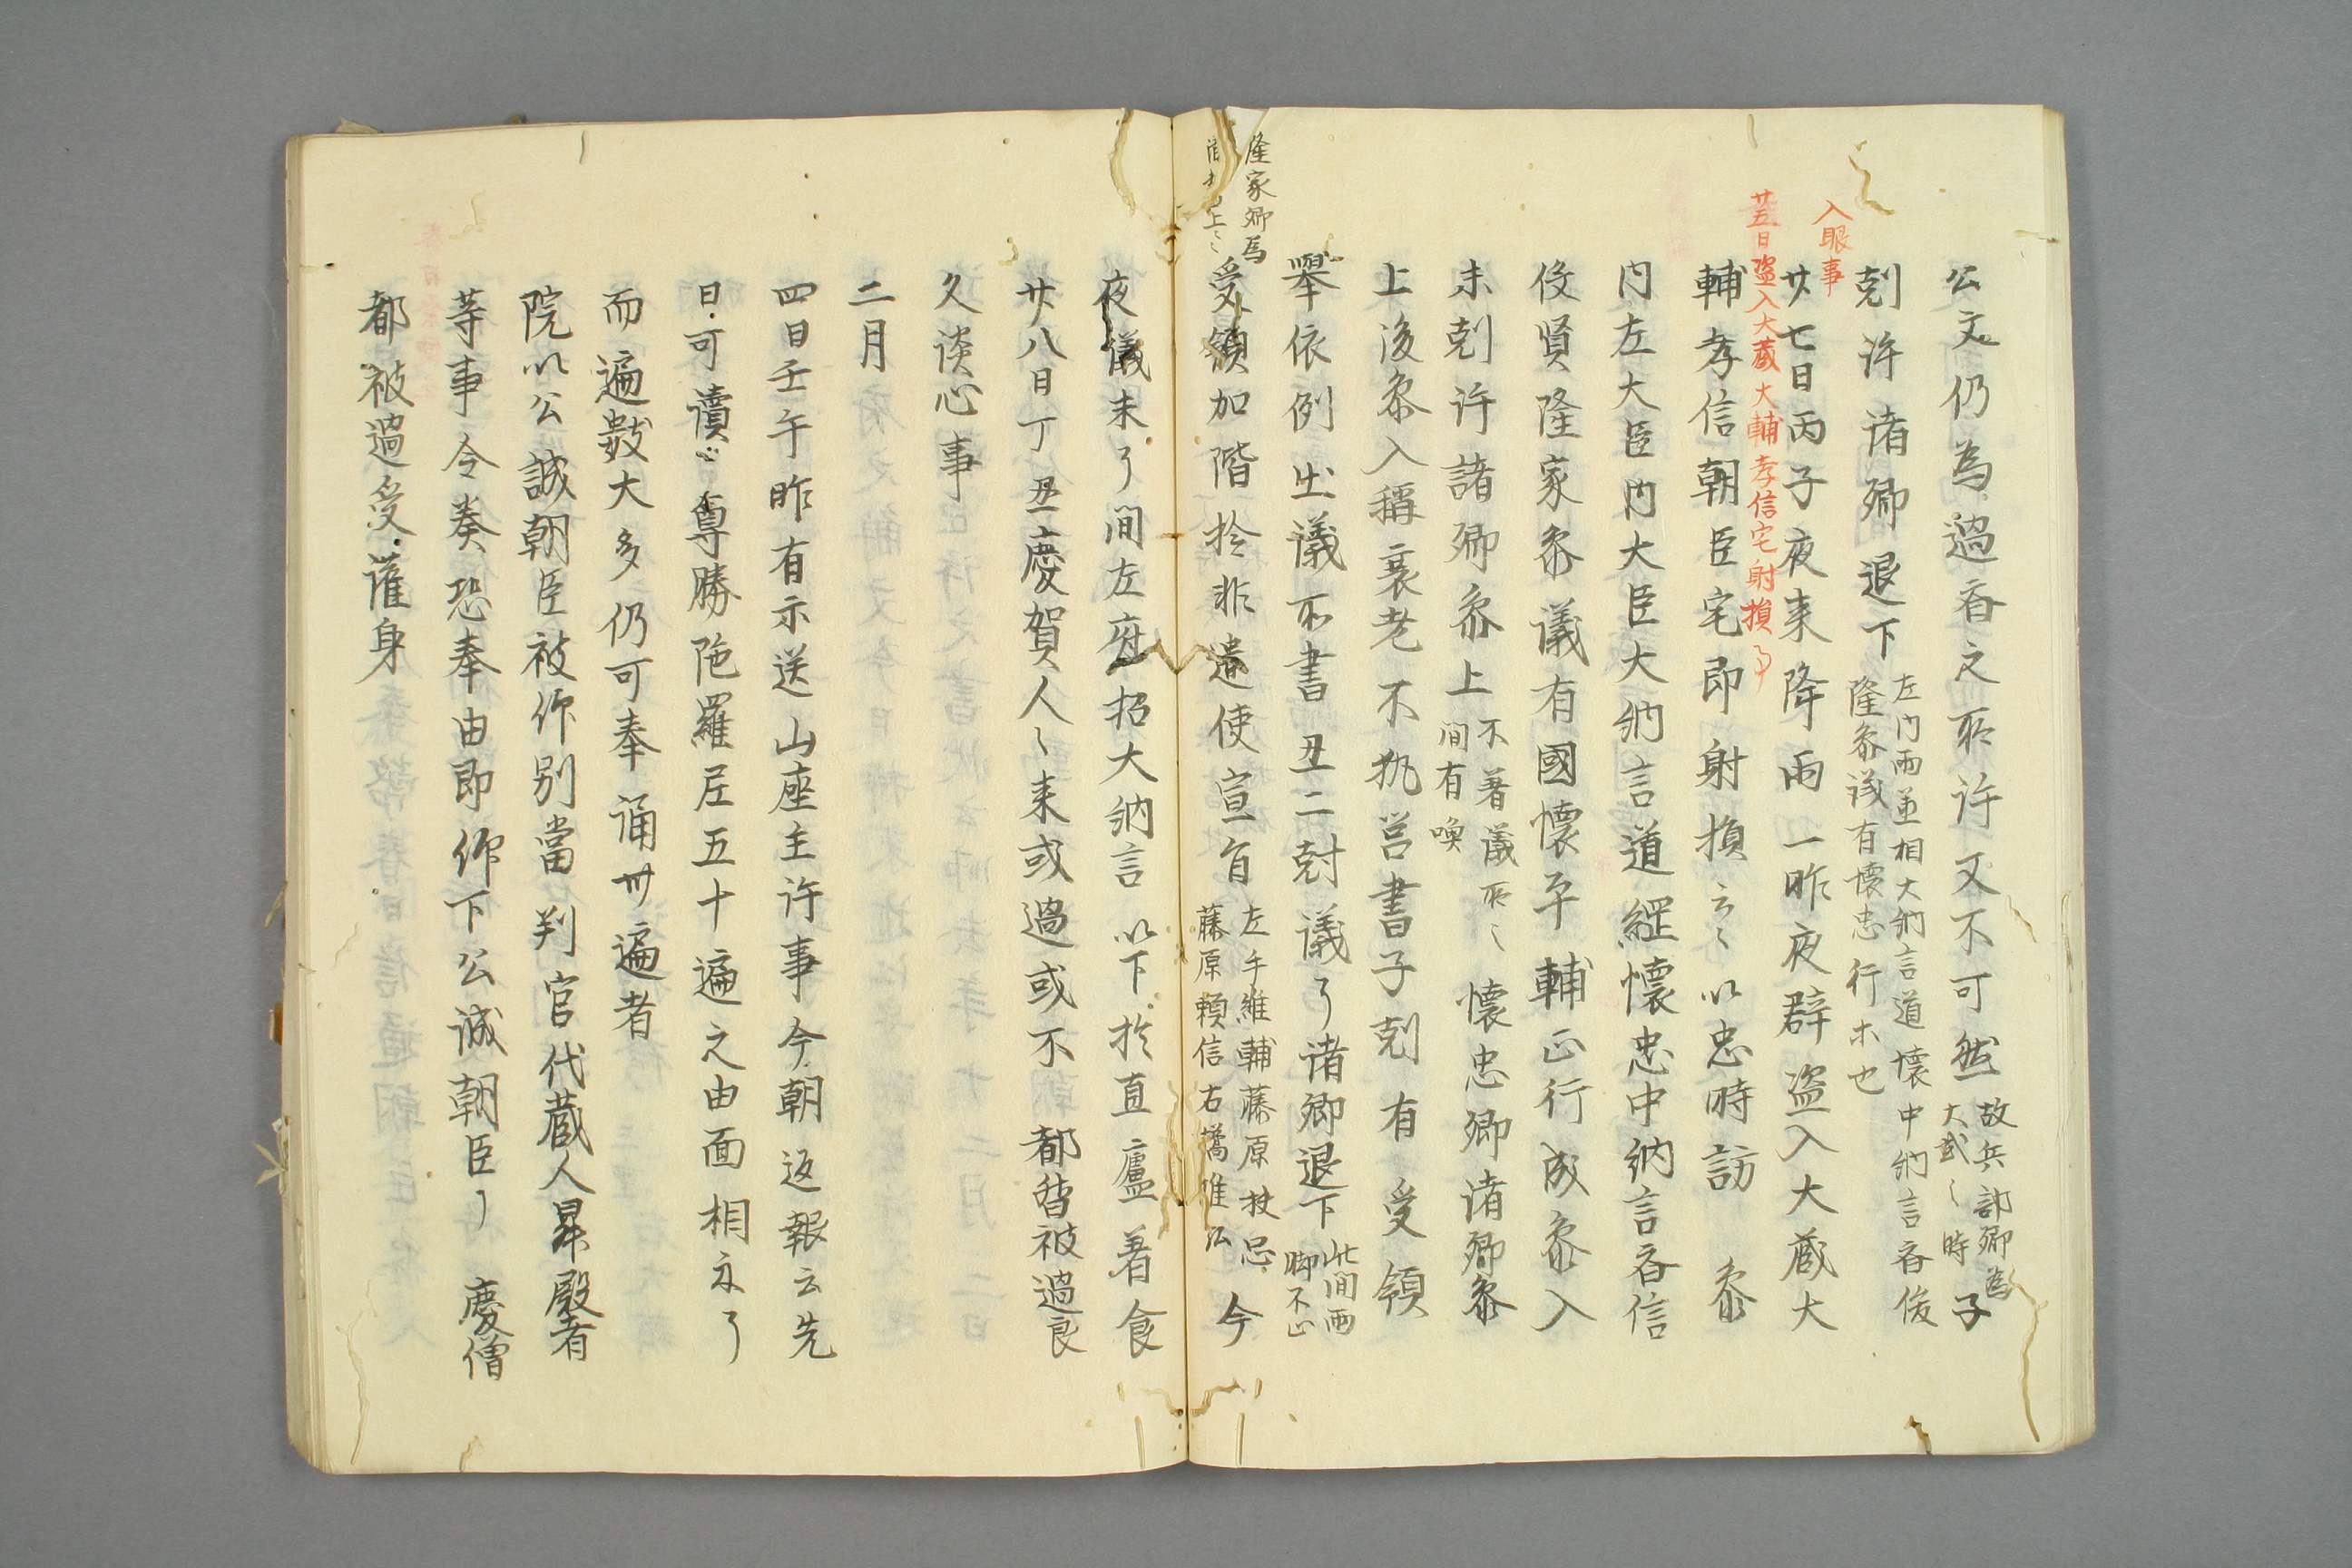 公文仍為過看之所許又不可然 故兵部卿為
大貳〻時 子
剋許諸卿退下 左内両丞相大納言道懐中納言斉俊
隆参議有懐忠行末也
入眼事
廿七日丙子夜来降雨一昨夜群盗入大蔵大
廿五日盗入大蔵大輔孝信宅射損了
輔孝信朝臣宅即射損云〻以忠時訪 参
内左大臣内大臣大納言道綱懐忠中納言斉信
俊賢隆家参議有國懐平輔正行成参入
未剋許諸卿参上 不着議所〻
間有喚 懐忠卿諸卿参
上後参入稱衰老不執筥書子剋有受領
舉依例出議所書丑二剋議了諸卿退下 此間雨
脚不止
隆家卿為
受領加階於非違使宣旨 左平維輔藤原
藤原頼信右 今
夜儀未了間左府招大納言以下於直廬着食
廿八日丁丑慶賀人〻来或過或不都督被過良
久談心事
二月
四日壬午昨有示送山座主許事今朝返報云先
日可讀 尊勝陁羅尼五十遍之由面相示了
而遍數大多仍可奉誦卅遍者
院以公誠朝臣被仰別當判官代蔵人昇殿者
等事令奏恐奉由即仰下公誠朝臣了 慶僧
都被過受灌身